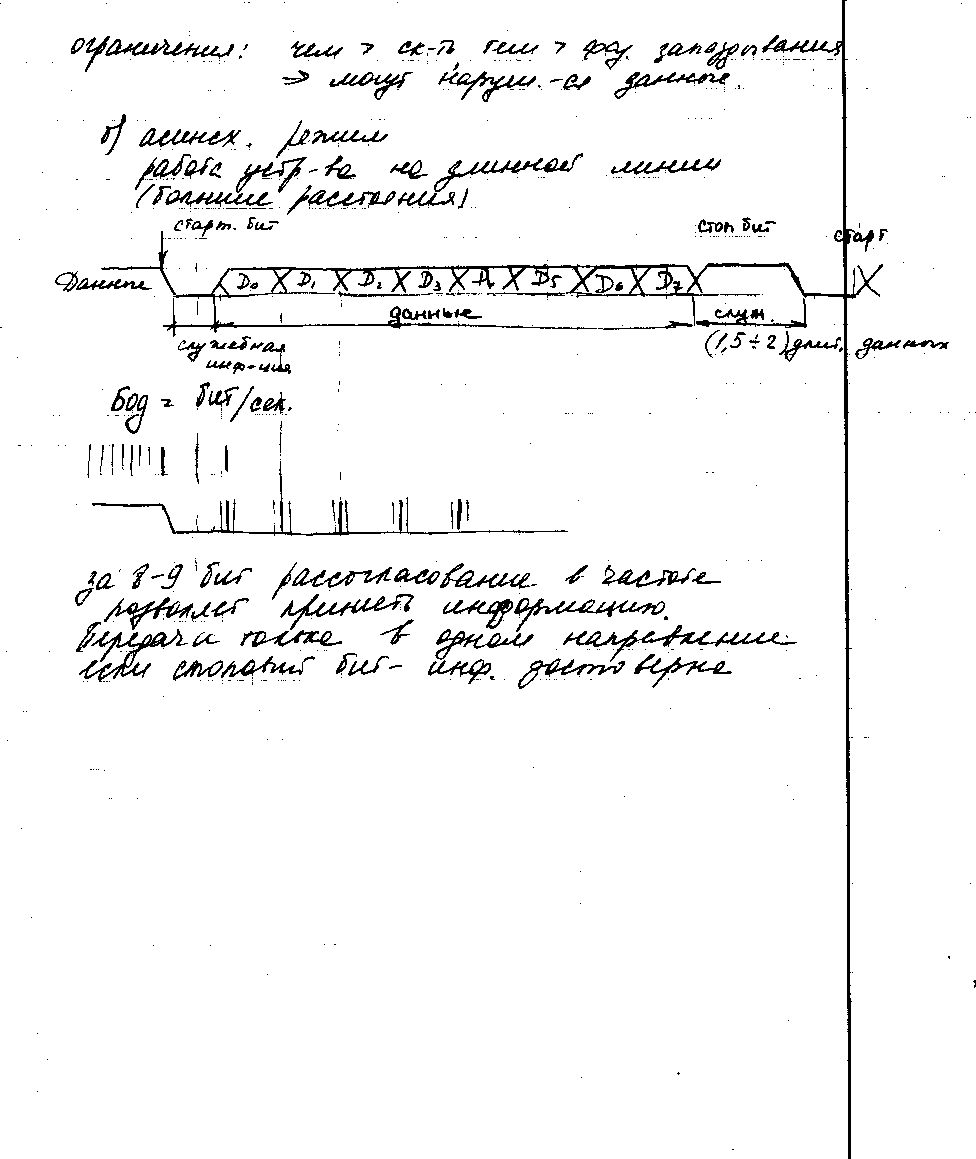 ограничения: чем > ск-ть тем > фаз. запаздывания
=> могут наруш.-ся данные.
б) асинх. режим
работа устр-ва на длинной линии
(большие расстояния)
старт. бит стоп бит старт
Данные D0 D1 D2 D3 D4 D5 D6 D7
данные служ.
служебная (1,5÷2) длит. данных
инф-ция
Бод = бит/сек.
за 8-9 бит рассогласование в частоте
позволяет принять информацию.
Передачи только в одном направлении
если стоповый бит - инф. достоверна